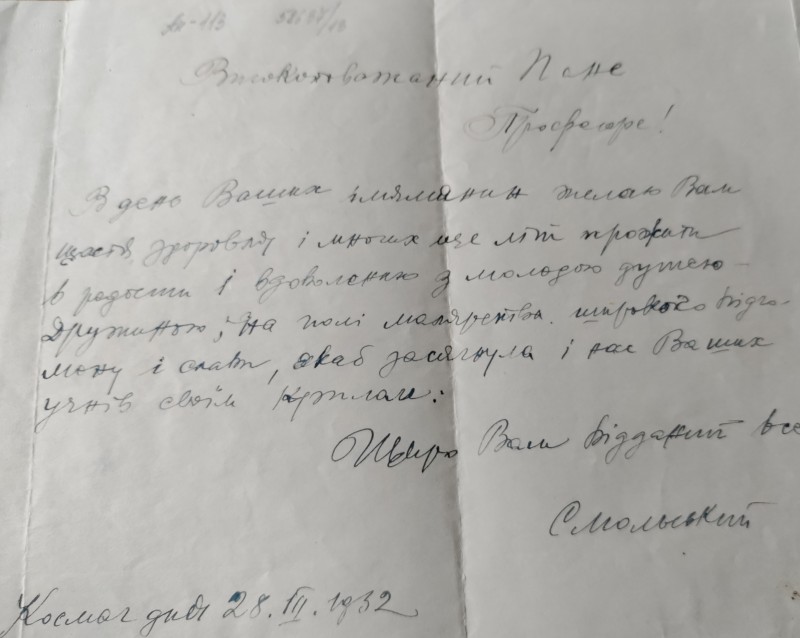 Ар-113 52637/13
Високоповажаний Пане
Професоре!
В день Ваших імянинин желаю Вам
щастя, здоровля і многих ще літ прожити
в радости і вдоволеню з молодою душею-
Дружиною; На полі малярства широкого відго-
мону і слави, якаб засягнула і нас Ваших
учнів своїм Крилам:
Щиро Вам відданий все
Смольський
Космач дня 28. III. 1932